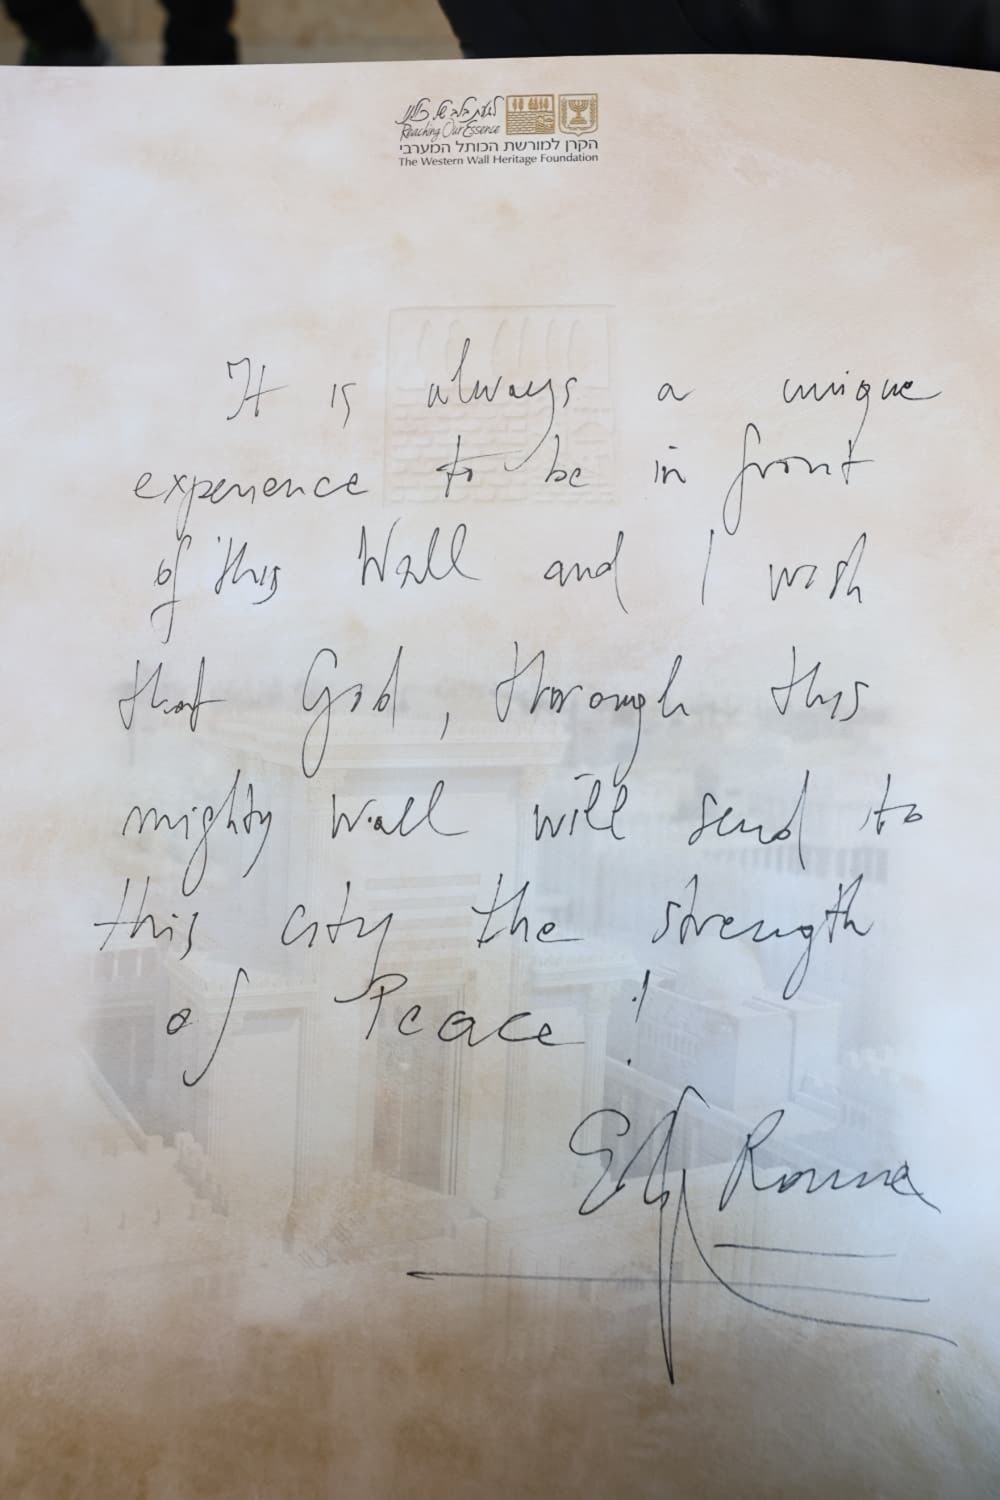 לגעת בלב של כולנו
Reaching Our Essence
הקרן למורשת הכותל המערבי
The Western Wall Heritage Foundation
It is always a unique
experience to be in front
of this Wall and I wish
that God, through this
mighty Wall will send to
this city the strength
of Peace!